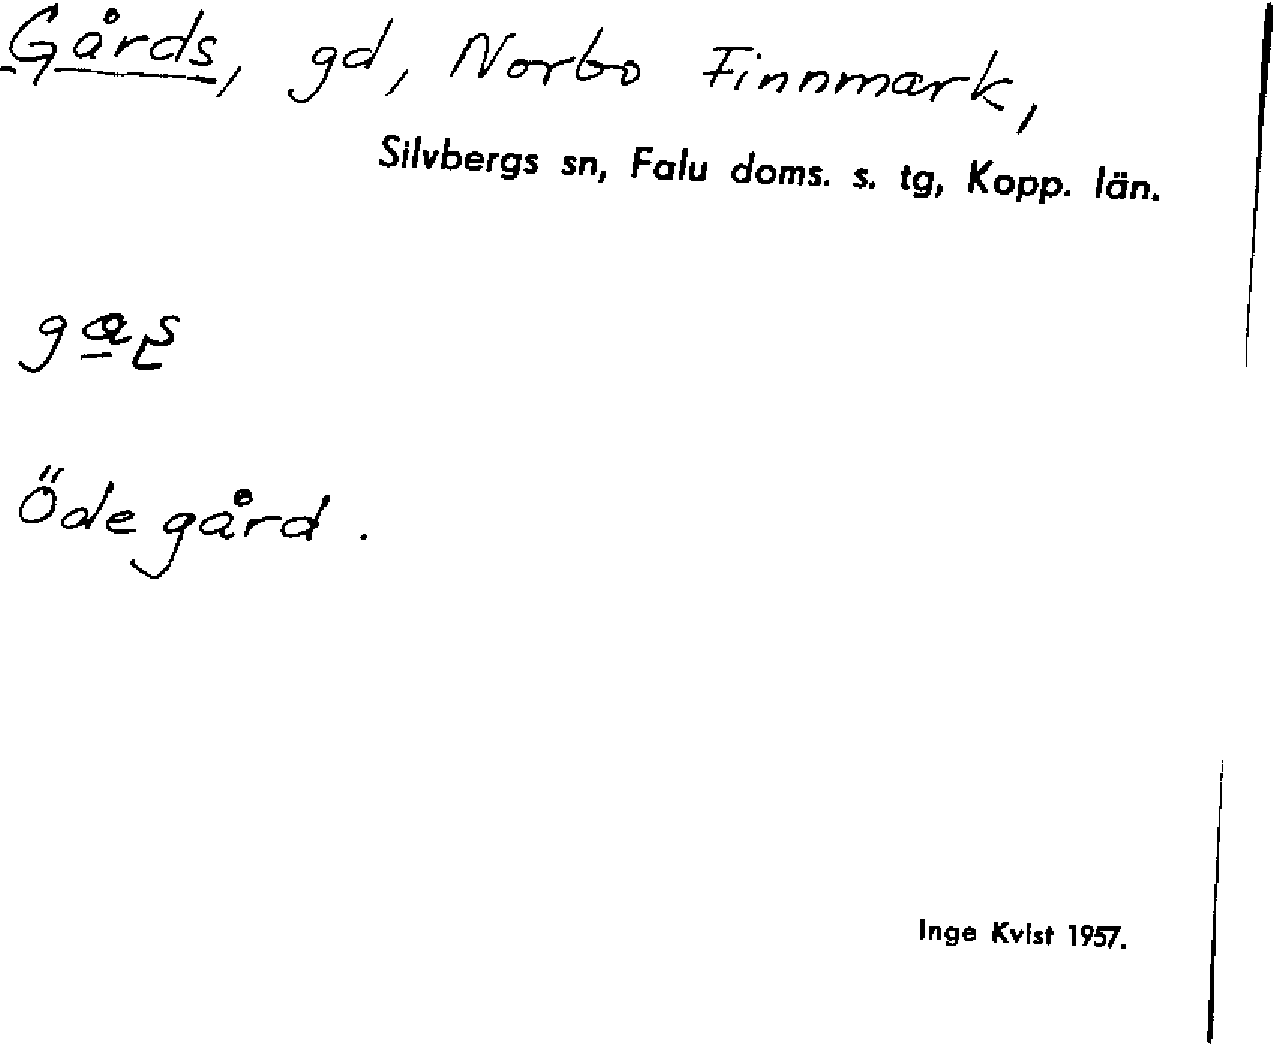 Gårds, gd, Norbo Finnmark,
Silvbergs sn, Falu doms. s. tg, Kopp. län.
Öde gård.
Inge Kvist 1957.